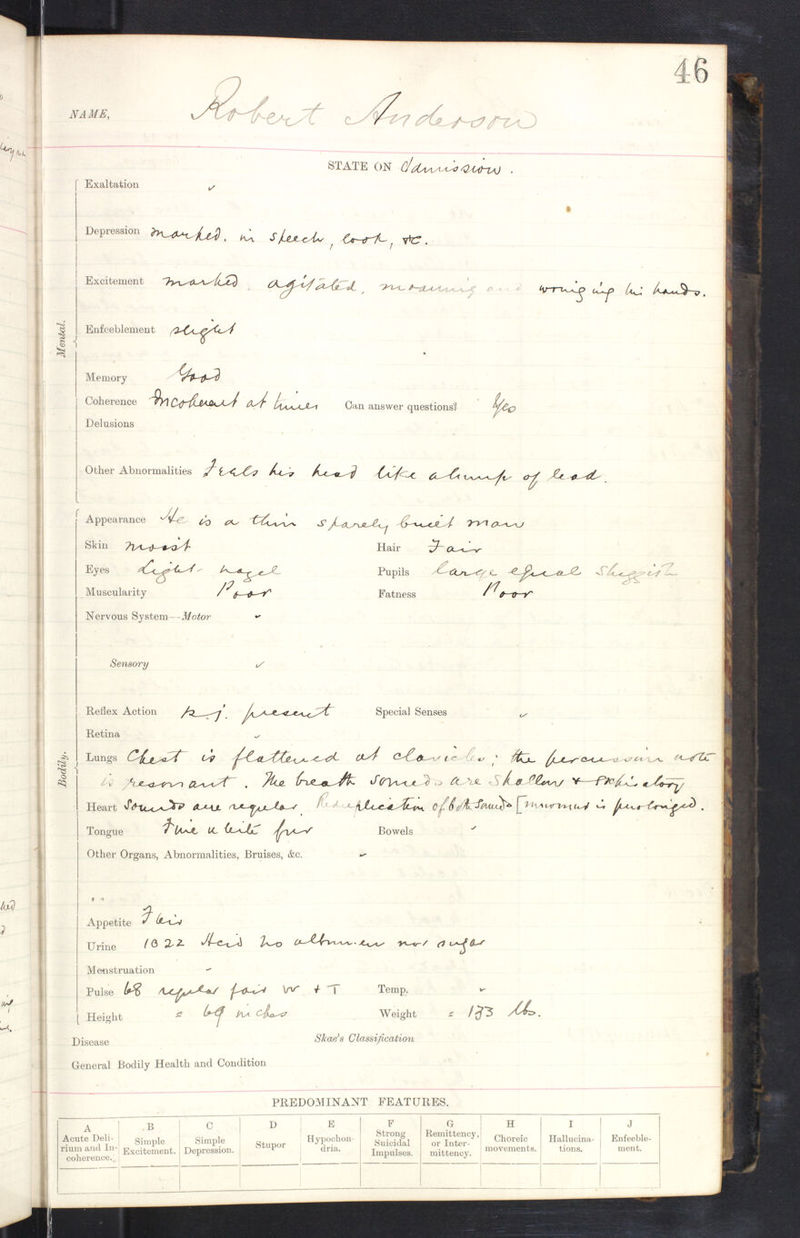 46
NAME, Robert Anderson
STATE ON Admission .
Exaltation ✓
Depression marked, in speech, look, &c.
Excitement marked . agitated, moaning and wringing his hands.
Mental.
Enfeeblement slight
Memory Good
Coherence Incoherent at times Can answer questions? Yes
Delusions
Other Abnormalities Feels his head like a lump of lead.
Appearance He is a thin sparely built man
Skin moist Hair Fair
Eyes Light hazel Pupils large equal sluggish
Muscularity Poor Fatness Poor
Nervous System—Motor ✓
Sensory ✓
Reflex Action k. j. present Special Senses ✓
Retina ✓
Bodily.
Lungs Chest is flattened at clavicles ; the percussion note
is resonant . The breath sounds are shallow &
Heart Sounds are regular. Reduplication of both sounds [murmur is prolonged.
Tongue Fine white fur Bowels ✓
Other Organs, Abnormalities, Bruises, &c. ✓
Appetite Fair
Urine 1022 Acid No albumen nor sugar
Menstruation ✓
Pulse 68 regular fair V + T Temp. ✓
Height = 69 inches Weight = 133 lbs.
Disease Skae's Classification
General Bodily Health and Condition
PREDOMINANT FEATURES.
A B C D E F G H I J
Acute Delirium and Incoherence. Simple Excitement. Simple Depression. Stupor Hypochondria. Strong Suicidal Impulses. Remittency, or Intermittency. Choreic movements. Hallucinations. Enfeeblement.